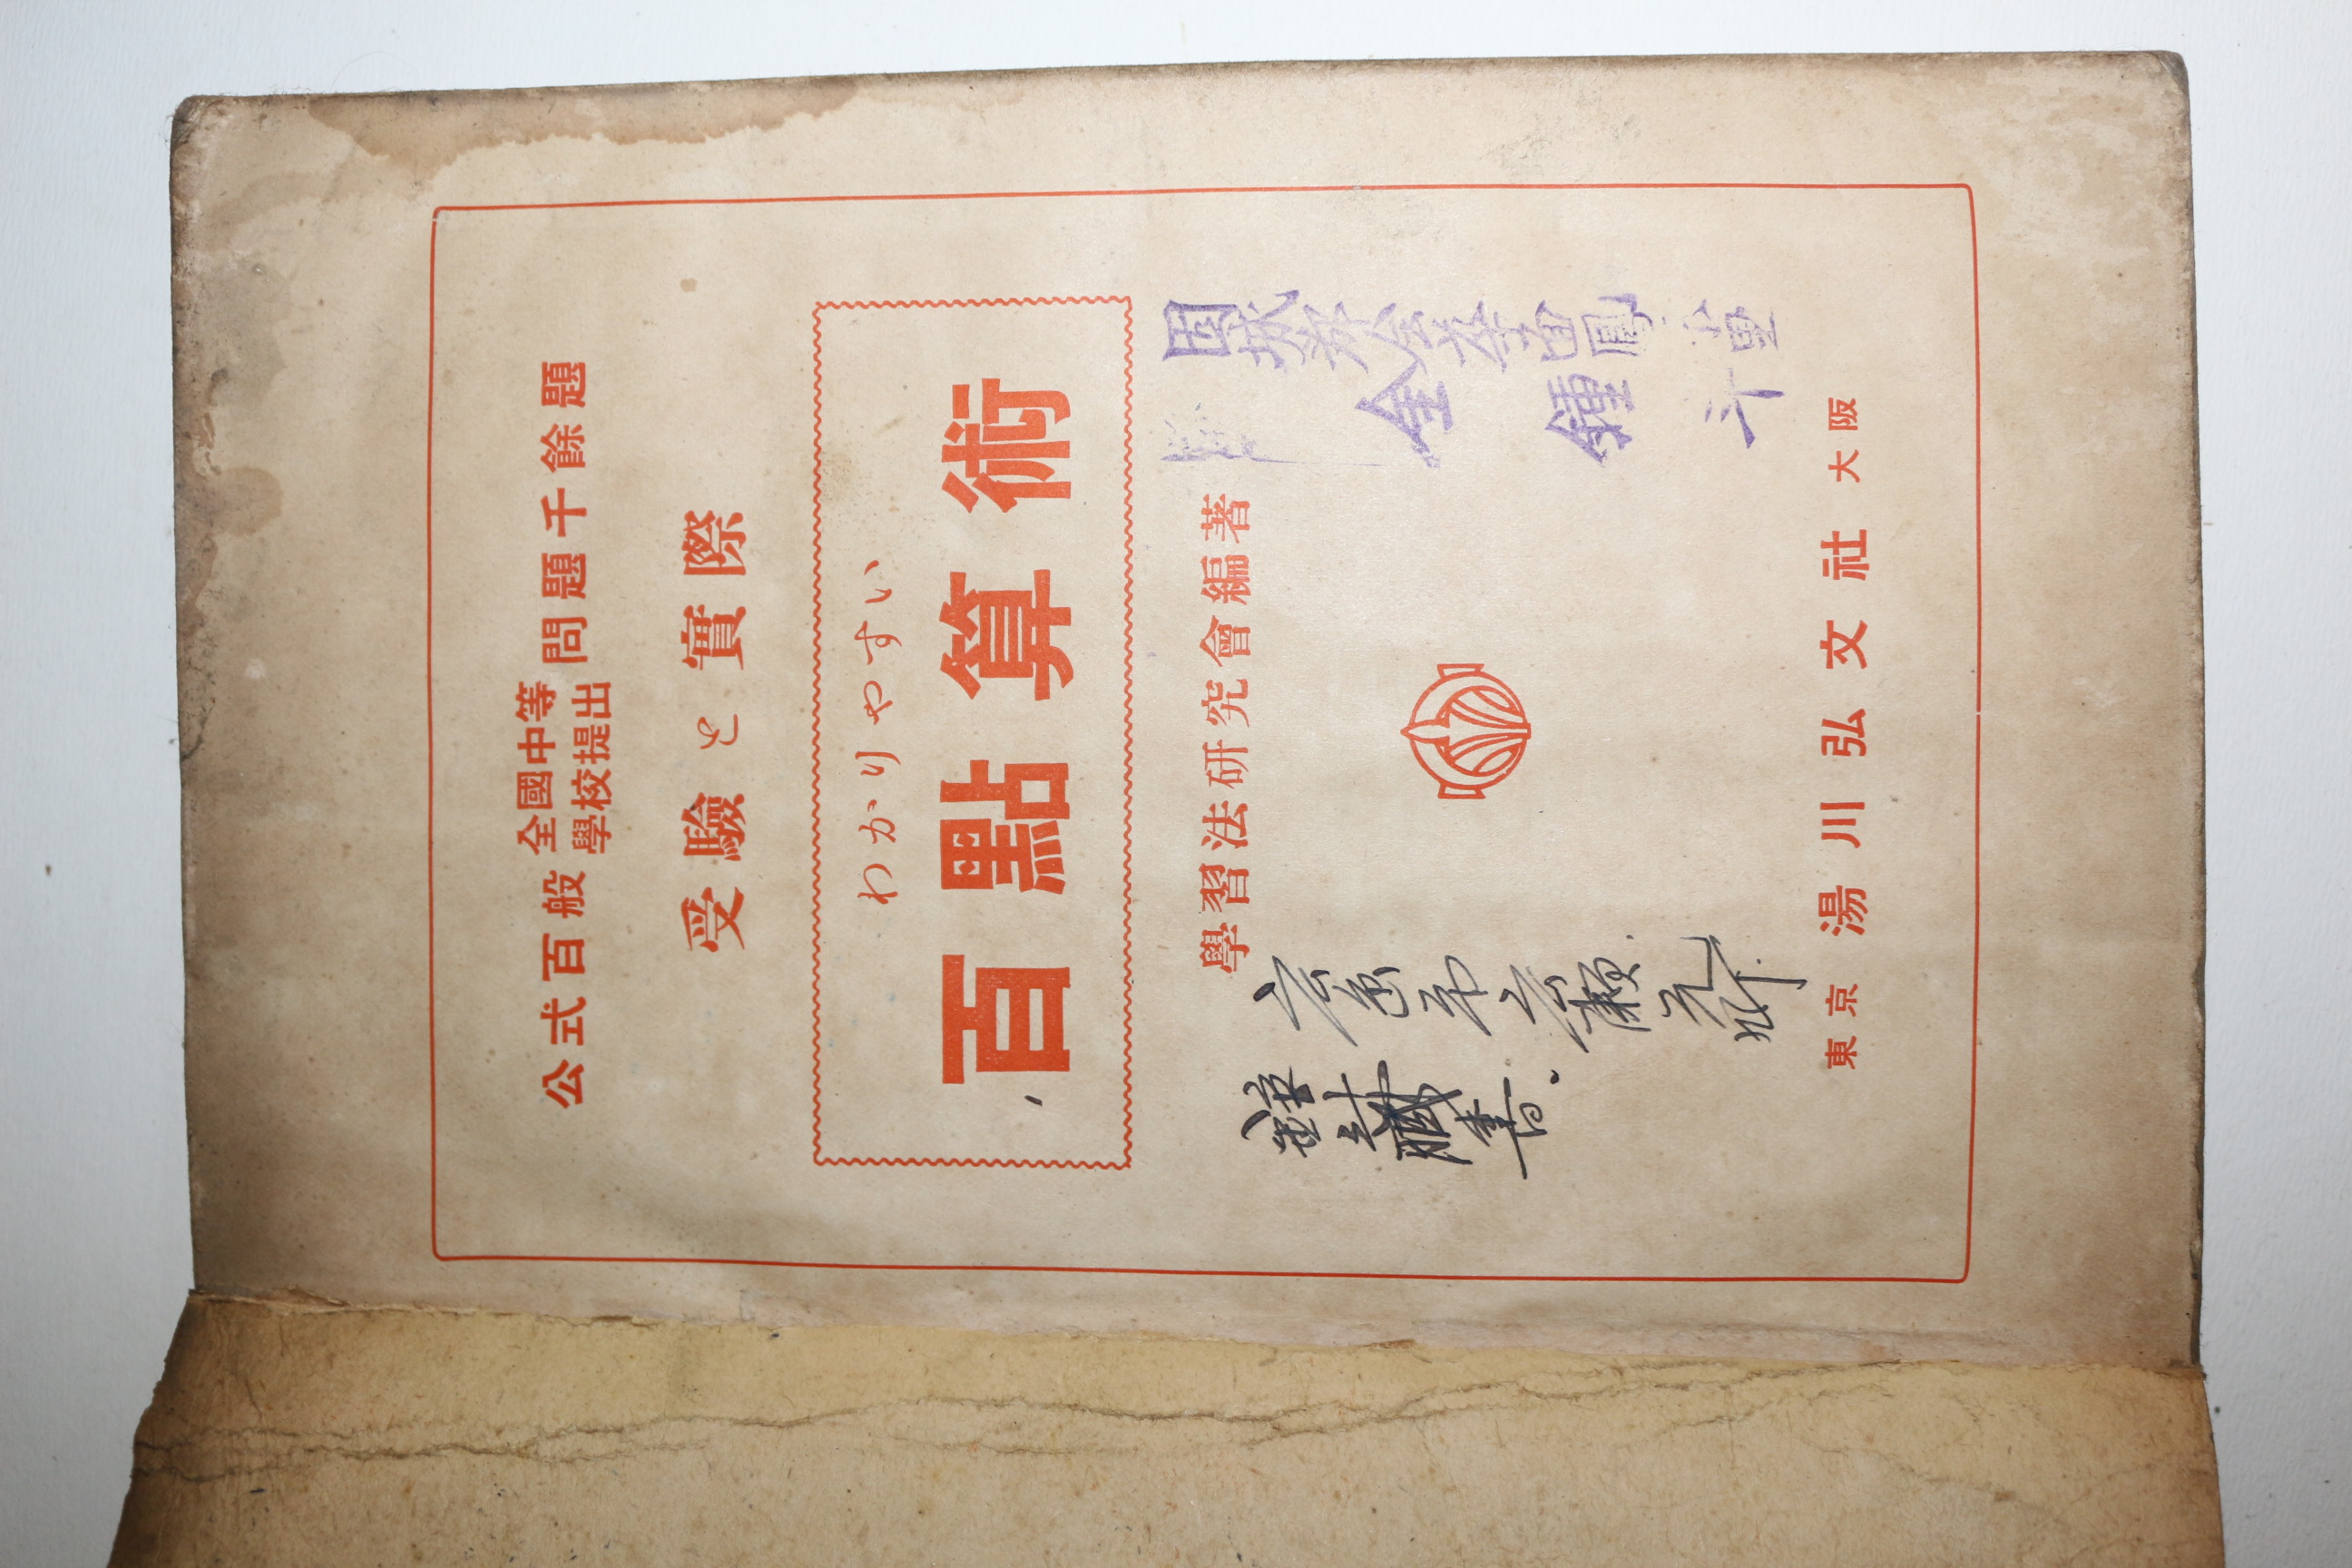 公式百般 全國中等學校提出 問題千餘題
受驗と實際
わかりやすい
百點算術
學習法研究會編著
固城郡會華面鳳
金鍾斗
広島市広瀬元町
鍾斗藏書.
東京 湯川弘文社 大阪